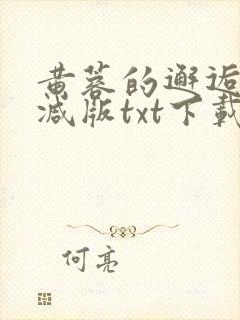 黄蓉的邂逅
减版txt下载
何亮